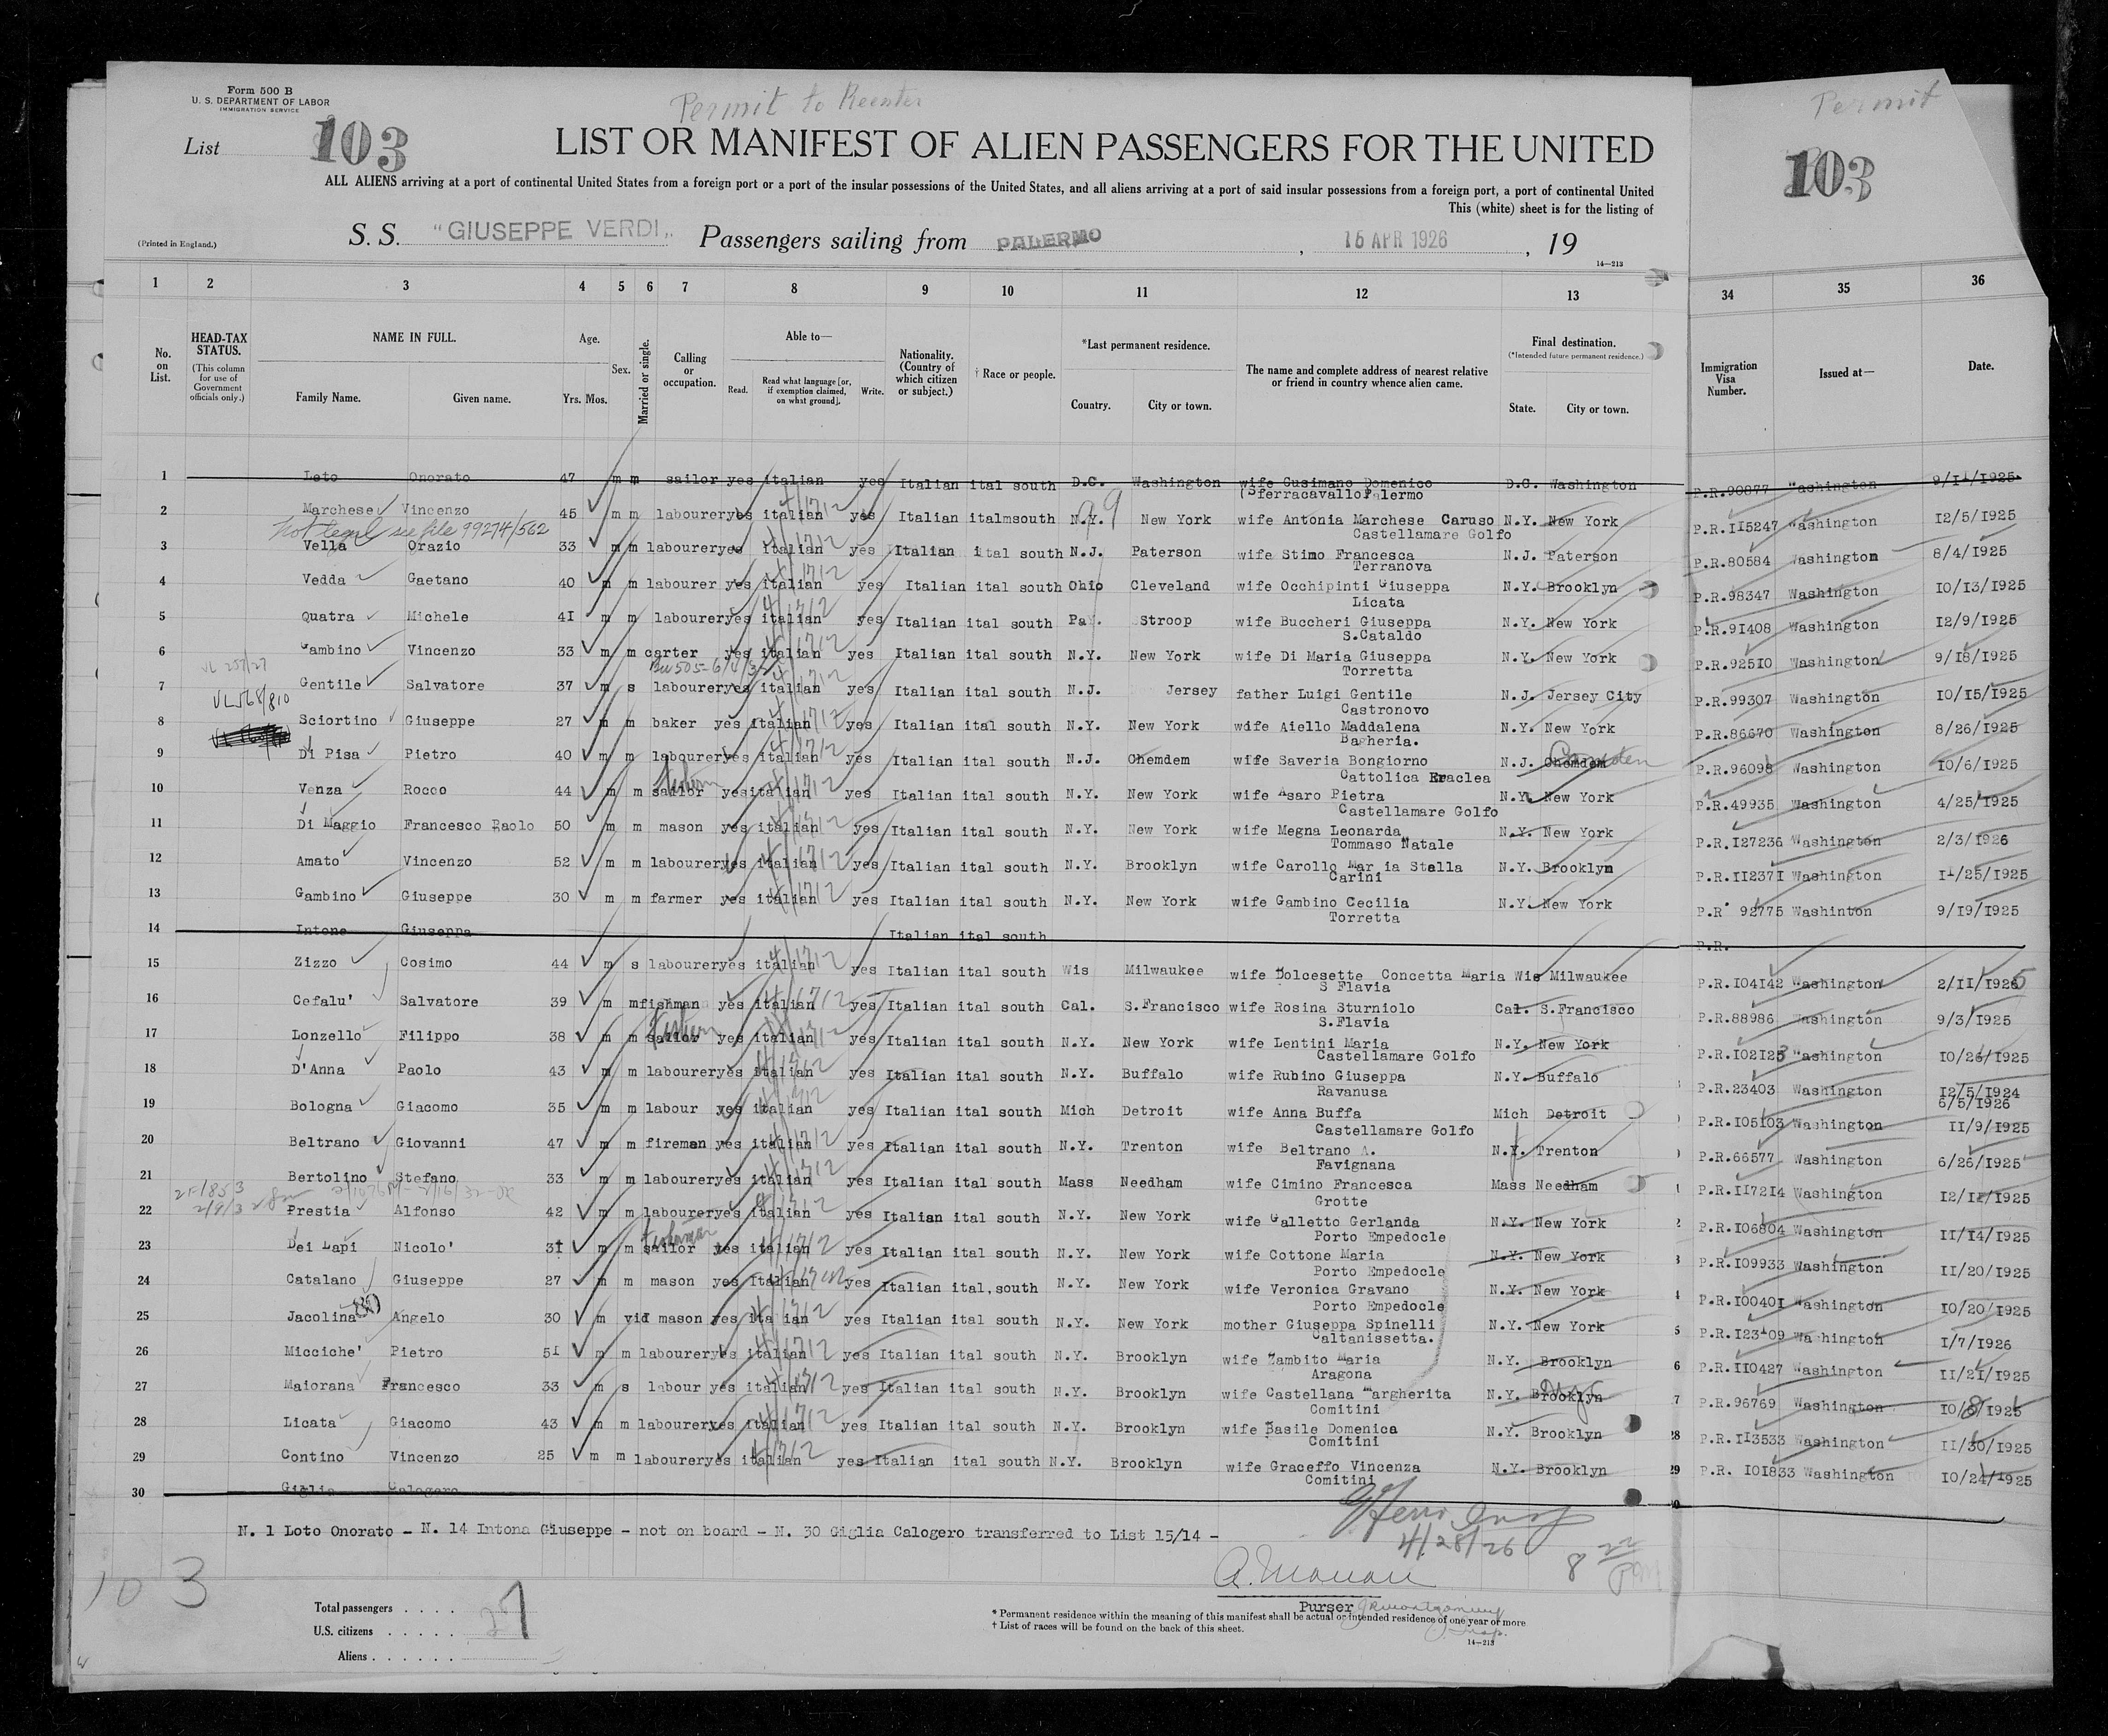 Form 500 B
U. S. DEPARTMENT OF LABOR
IMMIGRATION SERVICE
Permit to Reenter
Permit
List 103
103
LIST OR MANIFEST OF ALIEN PASSENGERS FOR THE UNITED
ALL ALIENS arriving at a port of continental United States from a foreign port or a port of the insular possessions of the United States, and all aliens arriving at a port of said insular possessions from a foreign port, a port of continental United
This (white) sheet is for the listing of
(Printed in England.)
S. S. "GIUSEPPE VERDI„ Passengers sailing from PALERMO, 15 APR 1926, 19
14—213
1 2 3 4 5 6 7 8 9 10 11 12 13 34 35 36
No. on List. HEAD-TAX STATUS. (This column for use of Government officials only.) NAME IN FULL. Family Name. Given name. Age. Yrs. Mos. Sex. Married or single. Calling or occupation. Able to— Read. Read what language [or, if exemption claimed, on what ground]. Write. Nationality. (Country of which citizen or subject.) † Race or people. *Last permanent residence. Country. City or town. The name and complete address of nearest relative or friend in country whence alien came. Final destination. (*Intended future permanent residence.) State. City or town. Immigration Visa Number. Issued at— Date.
1 Leto Onorato 47 m m sailor yes italian yes Italian ital south D.C. Washington wife Cusimano Domenico D.C. Washington P.R.90877 Washington 9/11/1925
(Sferracavallo Palermo
2 Marchese Vincenzo 45 m m labourer yes italian yes Italian ital south N.Y. New York wife Antonia Marchese Caruso N.Y. New York P.R.115247 Washington 12/5/1925
Castellamare Golfo
Not legal see file 99274/562
3 Vella Orazio 33 m m labourer yes italian yes Italian ital south N.J. Paterson wife Stimo Francesca N.J. Paterson P.R.80584 Washington 8/4/1925
Terranova
4 Vedda Gaetano 40 m m labourer yes italian yes Italian ital south Ohio Cleveland wife Occhipinti Giuseppa N.Y. Brooklyn P.R.98347 Washington 10/13/1925
Licata
5 Quatra Michele 41 m m labourer yes italian yes Italian ital south Pa. Stroop wife Buccheri Giuseppa N.Y. New York P.R.91408 Washington 12/9/1925
S.Cataldo
6 Gambino Vincenzo 33 m m carter yes italian yes Italian ital south N.Y. New York wife Di Maria Giuseppa N.Y. New York P.R.92510 Washington 9/18/1925
Torretta
7 Gentile Salvatore 37 m s labourer yes italian yes Italian ital south N.J. Jersey father Luigi Gentile N.J. Jersey City P.R.99307 Washington 10/15/1925
Castronovo
VL568/810
8 Sciortino Giuseppe 27 m m baker yes italian yes Italian ital south N.Y. New York wife Aiello Maddalena N.Y. New York P.R.86670 Washington 8/26/1925
Bagheria.
9 Di Pisa Pietro 40 m m labourer yes italian yes Italian ital south N.J. Chemdem wife Saveria Bongiorno N.J. Chemdem Camden P.R.96098 Washington 10/6/1925
Cattolica Eraclea
10 Venza Rocco 44 m m sailor yes italian yes Italian ital south N.Y. New York wife Asaro Pietra N.Y. New York P.R.49935 Washington 4/25/1925
Castellamare Golfo
11 Di Maggio Francesco Paolo 50 m m mason yes italian yes Italian ital south N.Y. New York wife Megna Leonarda N.Y. New York P.R.127236 Washington 2/3/1926
Tommaso Natale
12 Amato Vincenzo 52 m m labourer yes italian yes Italian ital south N.Y. Brooklyn wife Carollo Maria Stella N.Y. Brooklyn P.R.112371 Washington 11/25/1925
Carini
13 Gambino Giuseppe 30 m m farmer yes italian yes Italian ital south N.Y. New York wife Gambino Cecilia N.Y. New York P.R. 92775 Washinton 9/19/1925
Torretta
14 Intone Giuseppa Italian ital south P.R.
15 Zizzo Cosimo 44 m s labourer yes italian yes Italian ital south Wis Milwaukee wife Dolcesette Concetta Maria Wis Milwaukee P.R.104142 Washington 2/11/1925
S Flavia
16 Cefalu' Salvatore 39 m m fishman yes italian yes Italian ital south Cal. S.Francisco wife Rosina Sturniolo Cal. S.Francisco P.R.88986 Washington 9/3/1925
S.Flavia
17 Lonzello Filippo 38 m m sailor yes italian yes Italian ital south N.Y. New York wife Lentini Maria N.Y. New York P.R.102123 Washington 10/26/1925
Castellamare Golfo
18 D'Anna Paolo 43 m m labourer yes italian yes Italian ital south N.Y. Buffalo wife Rubino Giuseppa N.Y. Buffalo P.R.23403 Washington 12/5/1924
Ravanusa 6/5/1926
19 Bologna Giacomo 35 m m labour yes italian yes Italian ital south Mich Detroit wife Anna Buffa Mich Detroit P.R.105103 Washington 11/9/1925
Castellamare Golfo
20 Beltrano Giovanni 47 m m fireman yes italian yes Italian ital south N.Y. Trenton wife Beltrano A. N.Y. Trenton P.R.66577 Washington 6/26/1925
Favignana
21 Bertolino Stefano 33 m m labourer yes italian yes Italian ital south Mass Needham wife Cimino Francesca Mass Needham P.R.117214 Washington 12/12/1925
Grotte
22 Prestia Alfonso 42 m m labourer yes italian yes Italian ital south N.Y. New York wife Galletto Gerlanda N.Y. New York P.R.106804 Washington 11/14/1925
Porto Empedocle
23 Dei Lapi Nicolo' 31 m m sailor yes italian yes Italian ital south N.Y. New York wife Cottone Maria N.Y. New York P.R.109933 Washington 11/20/1925
Porto Empedocle
24 Catalano Giuseppe 27 m m mason yes italian yes Italian ital,south N.Y. New York wife Veronica Gravano N.Y. New York P.R.100401 Washington 10/20/1925
Porto Empedocle
25 Jacolina Angelo 30 m vid mason yes ita ian yes Italian ital south N.Y. New York mother Giuseppa Spinelli N.Y. New York P.R.123109 Washington 1/7/1926
Caltanissetta.
26 Micciche' Pietro 51 m m labourer yes italian yes Italian ital south N.Y. Brooklyn wife Zambito Maria N.Y. Brooklyn P.R.110427 Washington 11/21/1925
Aragona
27 Maiorana Francesco 33 m s labour yes italian yes Italian ital south N.Y. Brooklyn wife Castellana Margherita N.Y. Brooklyn P.R.96769 Washington 10/8/1925
Comitini
28 Licata Giacomo 43 m m labourer yes italian yes Italian ital south N.Y. Brooklyn wife Basile Domenica N.Y. Brooklyn P.R.113533 Washington 11/30/1925
Comitini
29 Contino Vincenzo 25 m m labourer yes italian yes Italian ital south N.Y. Brooklyn wife Graceffo Vincenza N.Y. Brooklyn P.R. 101833 Washington 10/24/1925
Comitini
30 Giglia Calogero
N. 1 Loto Onorato - N. 14 Intona Giuseppe - not on board - N. 30 Giglia Calogero transferred to List 15/14 -
4/28/26
103
Purser
Total passengers . . . . 27
U.S. citizens . . . . .
Aliens . . . . . .
* Permanent residence within the meaning of this manifest shall be actual or intended residence of one year or more
† List of races will be found on the back of this sheet.
14—213